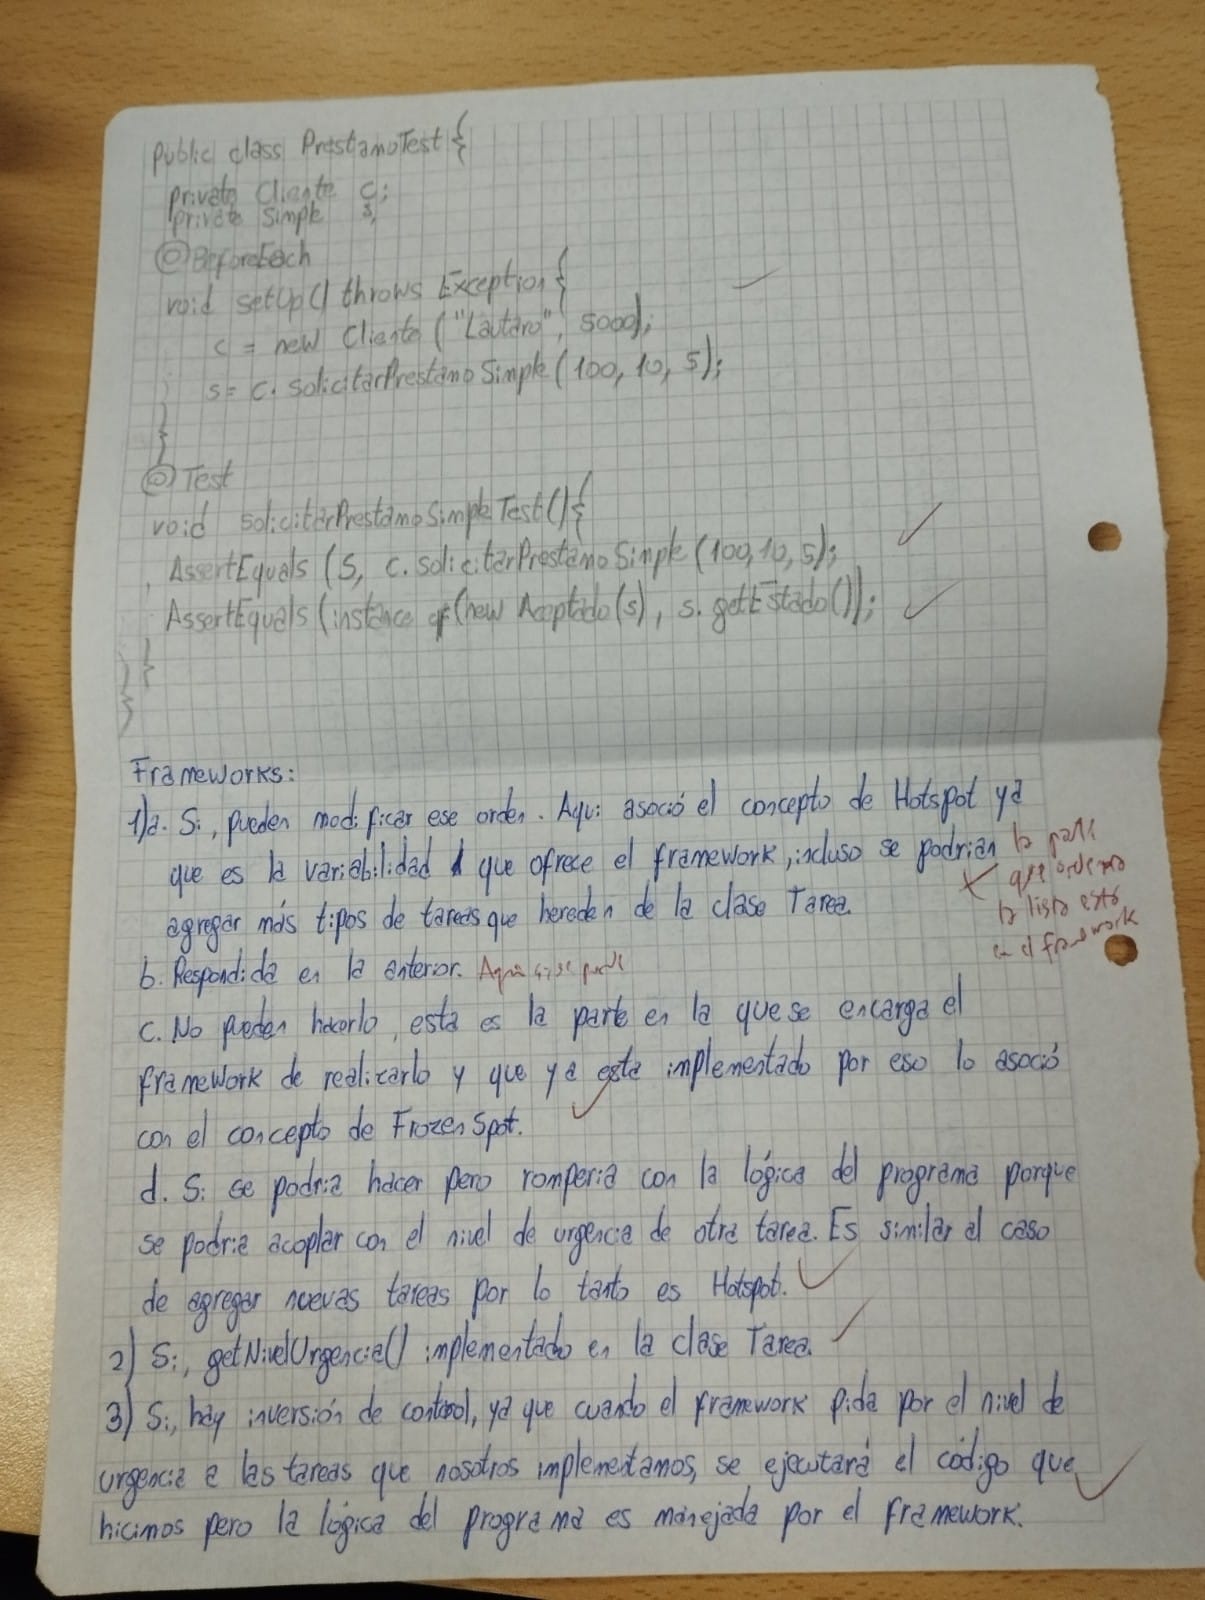 Public class PrestamoTest {
private Cliente c;
private Simple s;
@BeforeEach
void setUp() throws Exception {
c = new Cliente ("Lautaro", 5000);
s = c. solicitarPrestamoSimple (100, 10, 5);
}
@Test
void solicitarPrestamoSimpleTest() {
AssertEquals (s, c. solicitarPrestamoSimple (100, 10, 5);
AssertEquals (instance of (new Aceptado(s), s. getEstado());
}
}
Frameworks:
1)a. Si, pueden modificar ese orden. Aqui asoció el concepto de Hotspot ya
que es la variabilidad que ofrece el framework, incluso se podrian
agregar más tipos de tareas que hereden de la clase Tarea.
la parte
que ordena
la lista está
en el framework
b. Respondida en la anterior. Aqui si se puede
c. No pueden hacerlo, esta es la parte en la que se encarga el
framework de realizarlo y que ya esta implementado por eso lo asoció
con el concepto de Frozen Spot.
d. Si se podria hacer pero romperia con la lógica del programa porque
se podria acoplar con el nivel de urgencia de otra tarea. Es similar al caso
de agregar nuevas tareas por lo tanto es Hotspot.
2) Si, getNivelUrgencia() implementado en la clase Tarea.
3) Si, hay inversión de control, ya que cuando el framework pida por el nivel de
urgencia a las tareas que nosotros implementamos, se ejecutará el código que
hicimos pero la lógica del programa es manejada por el framework.